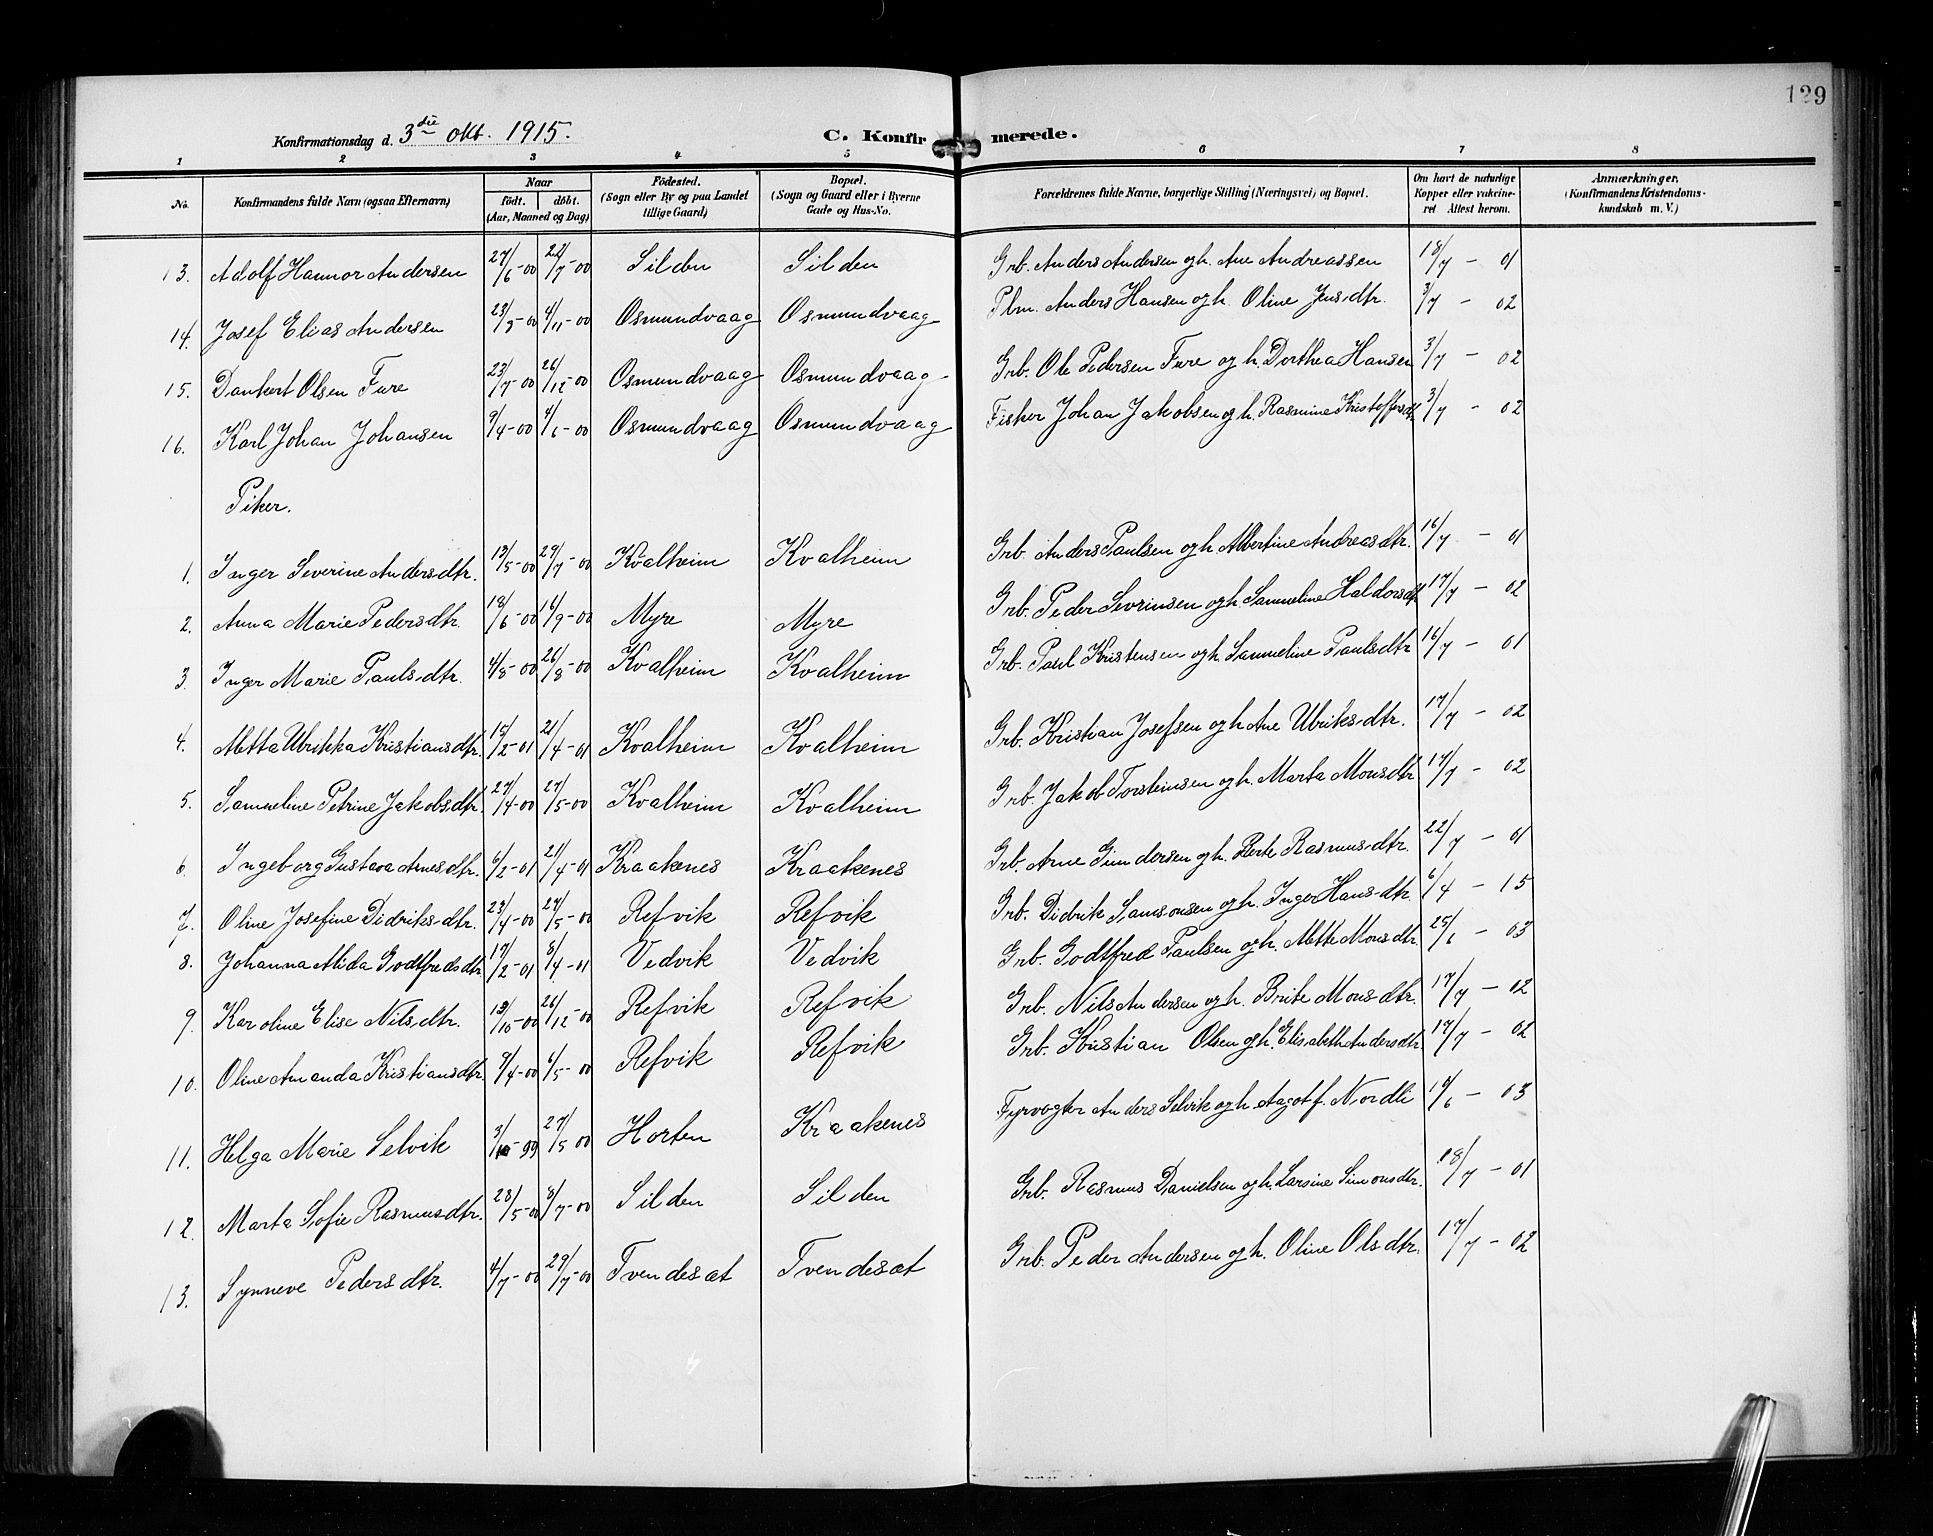 129
Konfirmationsdag d. 3die okt. 1915. C. Konfirmerede.
1 2 3 4 5 6 7 8
No. Konfirmandens fulde Navn (ogsaa Efternavn) Naar født. døbt. (Aar, Maaned og Dag) Fødested. (Sogn eller By og paa Landet tillige Gaard) Bopæl. (Sogn og Gaard eller i Byerne Gade og Hus-No. Forældrenes fulde Navne, borgerlige Stilling (Næringsvei) og Bopæl. Om havt de naturlige Kopper eller vakcineret Attest herom. Anmærkninger, (Konfirmandens Kristendomskundskab m. V.)
13. Adolf Hannor Andersen 27/6-00 22/7-00 Silden Silden Grb. Anders Andersen og h. Ane Andreassen 18/7 - 01
14. Josef Elias Andersen 23/9-00 4/11-00 Osmundvaag Osmundvaag Plm. Anders Hansen og h. Oline Jensdtr. 3/7 - 02
15. Dankert Olsen Fure 23/7-00 26/12-00 Osmundvaag Osmundvaag Grb. Ole Pedersen Fure og h. Dorthea Hansen 3/7 - 02
16. Karl Johan Johansen 9/4-00 4/6-00 Osmundvaag Osmundvaag Fisker Johan Jakobsen og h. Rasmine Kristoffersdt. 3/7 - 02
Piker.
1. Inger Severine Andersdtr. 13/5-00 29/7-00 Kvalheim Kvalheim Grb. Anders Paulsen og h. Albertine Andreasdtr. 16/7 - 01
2. Anna Marie Pedersdtr. 18/6-00 16/9-00 Myre Myre Grb. Peder Sevrinsen og h. Sammeline Haldorsdt. 17/7 - 02
3. Inger Marie Paulsdtr. 4/8-00 26/8-00 Kvalheim Kvalheim Grb. Paul Kristensen og h. Sammeline Paulsdtr 16/7 - 01
4. Metta Ulrikka Kristiansdtr. 15/2-01 21/4-01 Kvalheim Kvalheim Grb. Kristian Josefsen og h. Ane Ulriksdtr. 17/7 - 02
5. Sammeline Petrine Jakobsdtr. 27/4-00 27/5-00 Kvalheim Kvalheim Grb. Jakob Torsteinsen og h. Marta Monsdtr 17/7 - 02
6. Ingeborg Gustava Arnesdtr. 6/2-01 21/4-01 Kraakenes Kraakenes Grb. Arne Gundersen og h. Berte Rasmusdtr. 22/7 - 01
7. Oline Josefine Didriksdtr. 23/4-00 24/5-00 Refvik Refvik Grb. Didrik Samsonsen og h. Inger Hansdtr. 6/4 - 15
8. Johanna Alida Godtfredsdtr 17/2-01 8/4-01 Vedvik Vedvik Grb. Godtfred Paulsen og h. Mette Monsdtr. 25/6 - 03
9. Karoline Elise Nilsdtr. 13/10-00 26/12-00 Refvik Refvik Grb. Nils Andersen og h. Brite Monsdtr. 17/7 - 02
10. Oline Amanda Kristiansdtr. 9/4-00 6/5-00 Refvik Refvik Grb. Kristian Olsen og h. Elisabeth Andersdtr. 17/7 - 02
11. Helga Marie Selvik 3/10-99 27/5 00 Horten Kraakenes Fyrvogter Anders Selvik og h. Aagot f. Nordli 14/6 - 03
12. Marta Sofie Rasmusdtr. 28/5-00 8/7-00 Silden Silden Grb. Rasmus Danielsen og h. Larsine Simonsdtr. 18/7 - 01
13. Synneve Pedersdtr. 4/7-00 29/7-00 Tvendesæt Tvendesæt Grb. Peder Andersen og h. Oline Olsdtr. 17/7 - 02